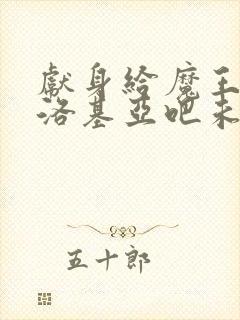 獻身給魔王
洛基亞吧未
五十郎